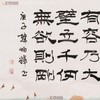 有容乃大
壁立千仞
無欲則剛